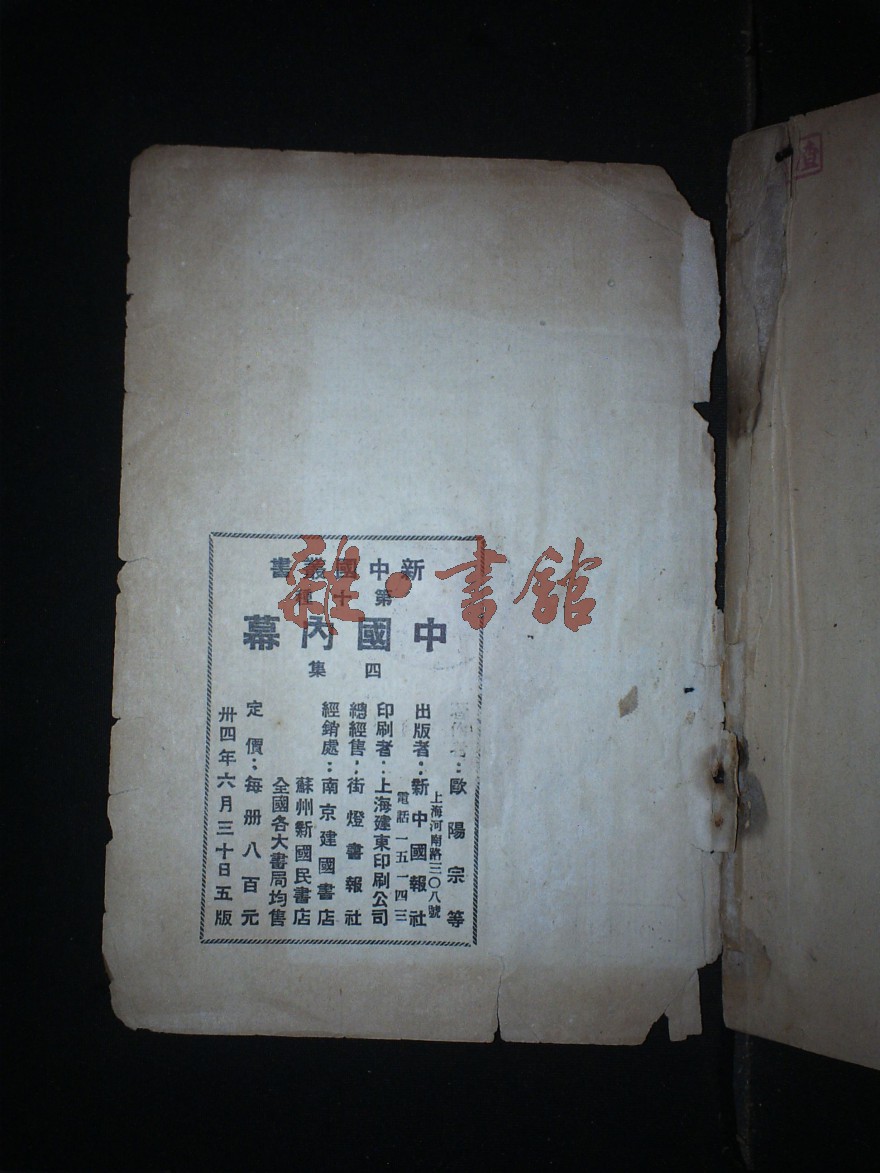 新中國叢書
第十種
中國內幕
四集
：歐陽宗等
出版者：新中國報社
上海河南路三〇八號
電話一五一四三
印刷者：上海建東印刷公司
總經售：街燈書報社
經銷處：南京建國書店
蘇州新國民書店
全國各大書局均售
定價：每册八百元
卅四年六月三十日五版
雜·書館